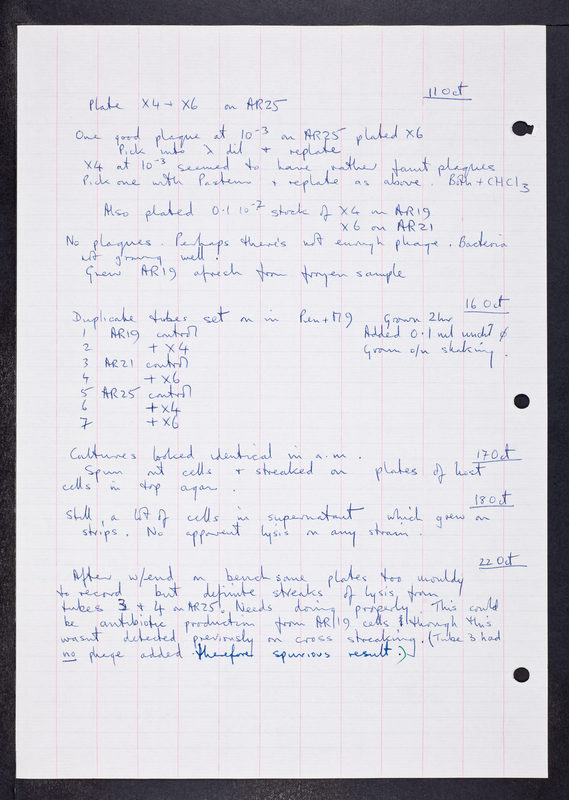 11 Oct
Plate X4 + X6 on AR25
One good plaque at 10⁻³ on AR25 plated X6
Pick into λ dil + replate
X4 at 10⁻³ seemed to have rather faint plaques
Pick one with Pasteur + replate as above. Both + CHCl₃
Also plated 0.1 10⁻² stock of X4 on AR19
X6 on AR21
No plaques. Perhaps there's not enough phage. Bacteria
not growing well.
Grew AR19 afresh from frozen sample
16 Oct
Duplicate tubes set on in Pen + M9 Grown 2hr
1 AR19 control Added 0.1 ml undil ∅
2 + X4 Grown o/n shaking.
3 AR21 control
4 + X6
5 AR25 control
6 + X4
7 + X6
Cultures looked identical in a.m. 17 Oct
Spun out cells + streaked on plates of host
cells in top agar.
18 Oct
Still, a lot of cells in supernatant which grew on
strips. No apparent lysis on any strain.
22 Oct
After w/end on bench some plates too mouldy
to record but definite streaks of lysis from
tubes 3 + 4 on AR25. Needs doing properly. This could
be antibiotic production from AR19 cells though this
wasnt detected previously on cross streaking. (Tube 3 had
no phage added therefore spurious result.)